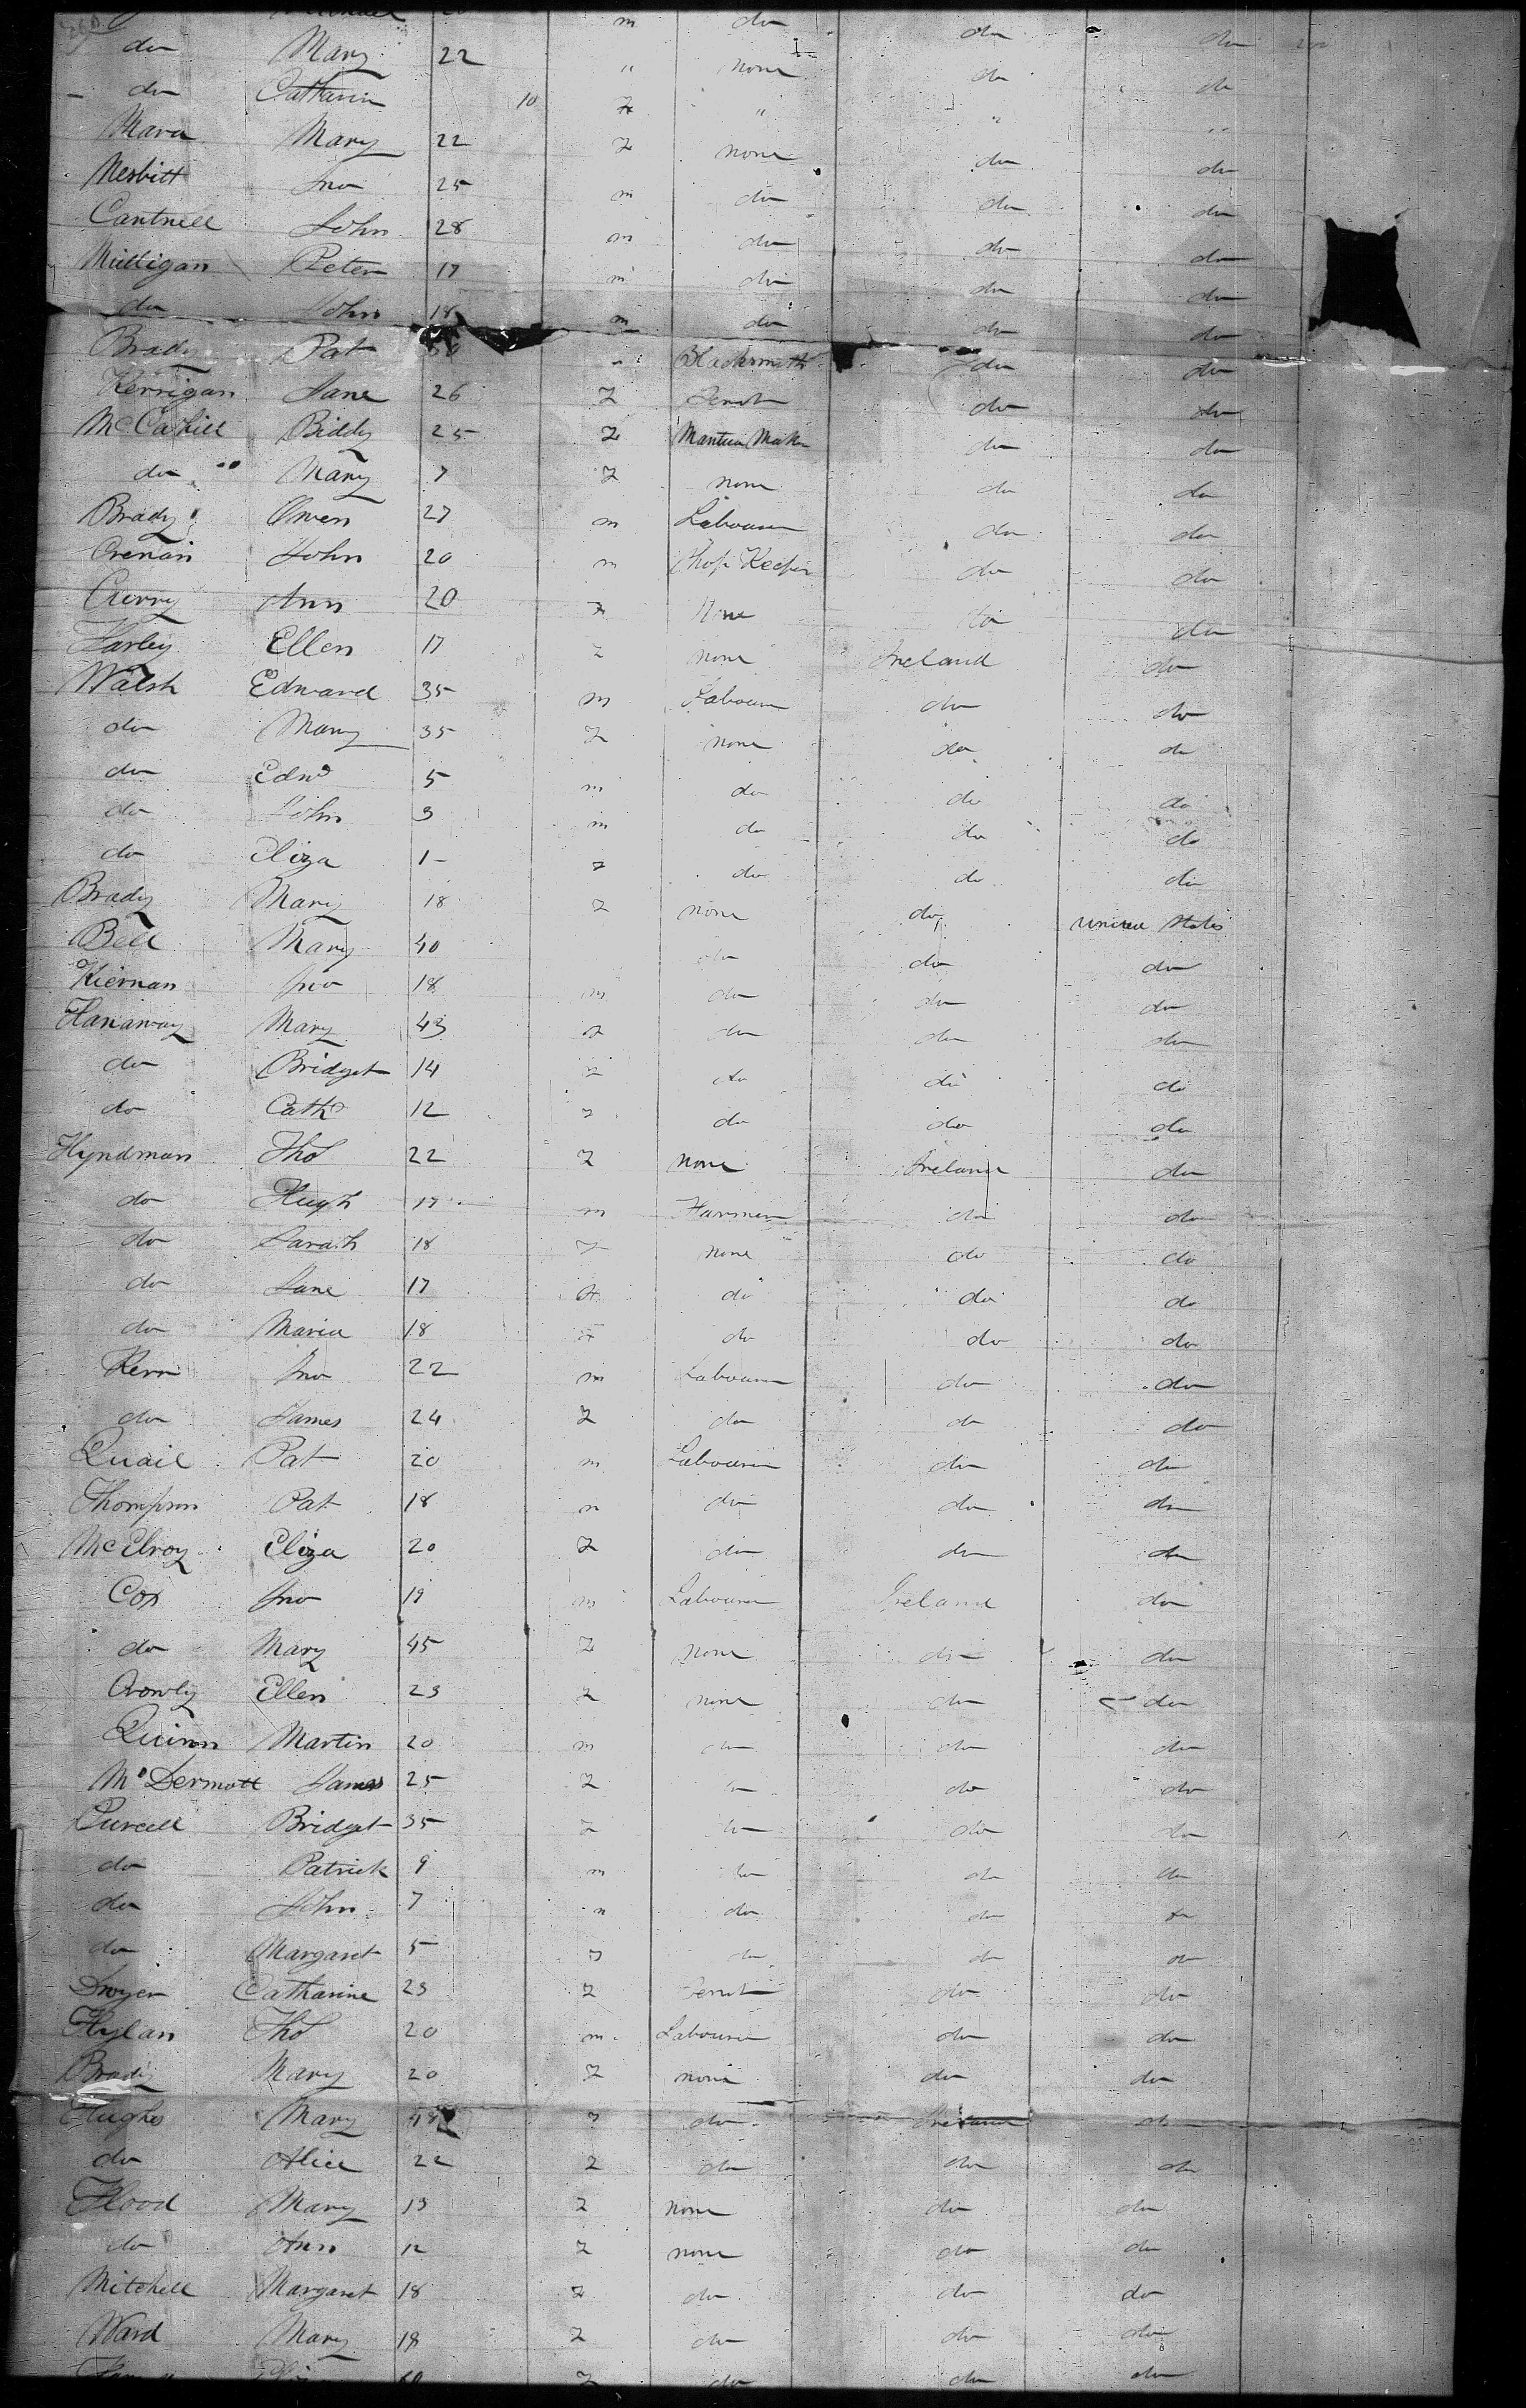 m do do do
do Mary 22 " none do do
do Catharin 10 F " " "
Mara Mary 22 F none do do
Nesbitt Jno 25 m do do do
Cantrell John 28 m do do do
Milligan Peter 17 m do do do
do John 18 m do do do
Brady Pat Blacksmith do do
Kerrigan Jane 26 F Servt do do
McCahill Biddy 25 F Mantua Maker do do
do Mary 7 F none do do
Brady Owen 27 m Labourer do do
Crenan John 20 m Shop Keeper do do
Curry Ann 20 F None do do
Farley Ellen 17 F none Ireland do
Walsh Edward 35 m Labourer do do
do Mary 35 F none do do
do Edwd 5 m do do do
do John 3 m do do do
do Eliza 1 F do do do
Brady Mary 18 F none do United States
Bell Mary 40 do do do
Kiernan Jno 18 m do do do
Hanaway Mary 43 F do do do
do Bridget 14 F do do do
do Cathe 12 F do do do
Hyndman Thos 22 F none Ireland do
do Hugh 17 m Farmer do do
do Sarah 18 F none do do
do Jane 17 F do do do
do Maria 18 F do do do
Kerr Jno 22 m Labourer do do
do James 24 F do do do
Quail Pat 20 m Labourer do do
Thompson Pat 18 m do do do
McElroy Eliza 20 F do do do
Cox Jno 19 m Labourer Ireland do
do Mary 45 F none do do
Crowly Ellen 23 F none do do
Quinn Martin 20 m do do do
McDermott James 25 F do do do
Purcell Bridget 35 F do do do
do Patrick 9 m do do do
do John 7 m do do do
do Margaret 5 F do do do
Dwyer Catharine 23 F Servt do do
Hylan Thos 20 m Labourer do do
Brady Mary 20 F none do do
Hughs Mary 48 F do Ireland do
do Alice 22 F do do do
Flood Mary 13 F none do do
do Ann 12 F none do do
Mitchell Margaret 18 F do do do
Ward Mary 18 F do do do
60 F do do do